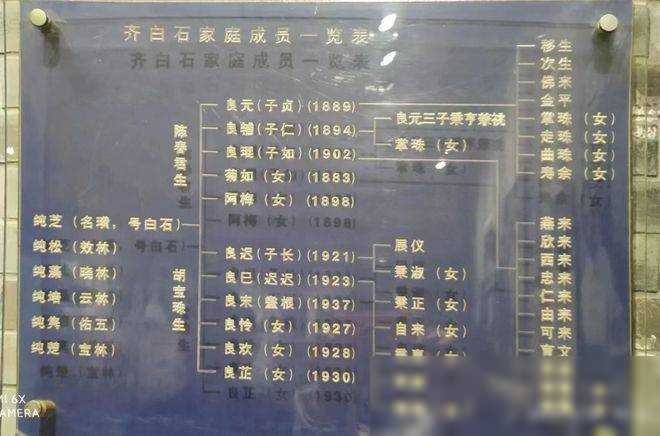 齐白石家庭成员一览表
纯芝（名璜，号白石）
纯松（效林）
纯藻（晓林）
纯培（云林）
纯隽（佑五）
纯楚（宝林）
陈春君生
良元（子贞）(1889)
良黼（子仁）(1894)
良琨（子如）(1902)
菊如（女）(1883)
阿梅（女）(1898)
胡宝珠生
良迟（子长）(1921)
良已（迟迟）(1923)
良末（耋根）(1937)
良怜（女）(1927)
良欢（女）(1928)
良芷（女）(1930)
良元三子秉亨兼祧
掌珠（女）
展仪
秉淑（女）
秉正（女）
自来（女）
移生
次生
佛来
金平
掌珠（女）
走珠（女）
曲珠（女）
寿余（女）
燕来
欣来
西来
忠来
仁来
由来
可来
MI 6X
CAMERA